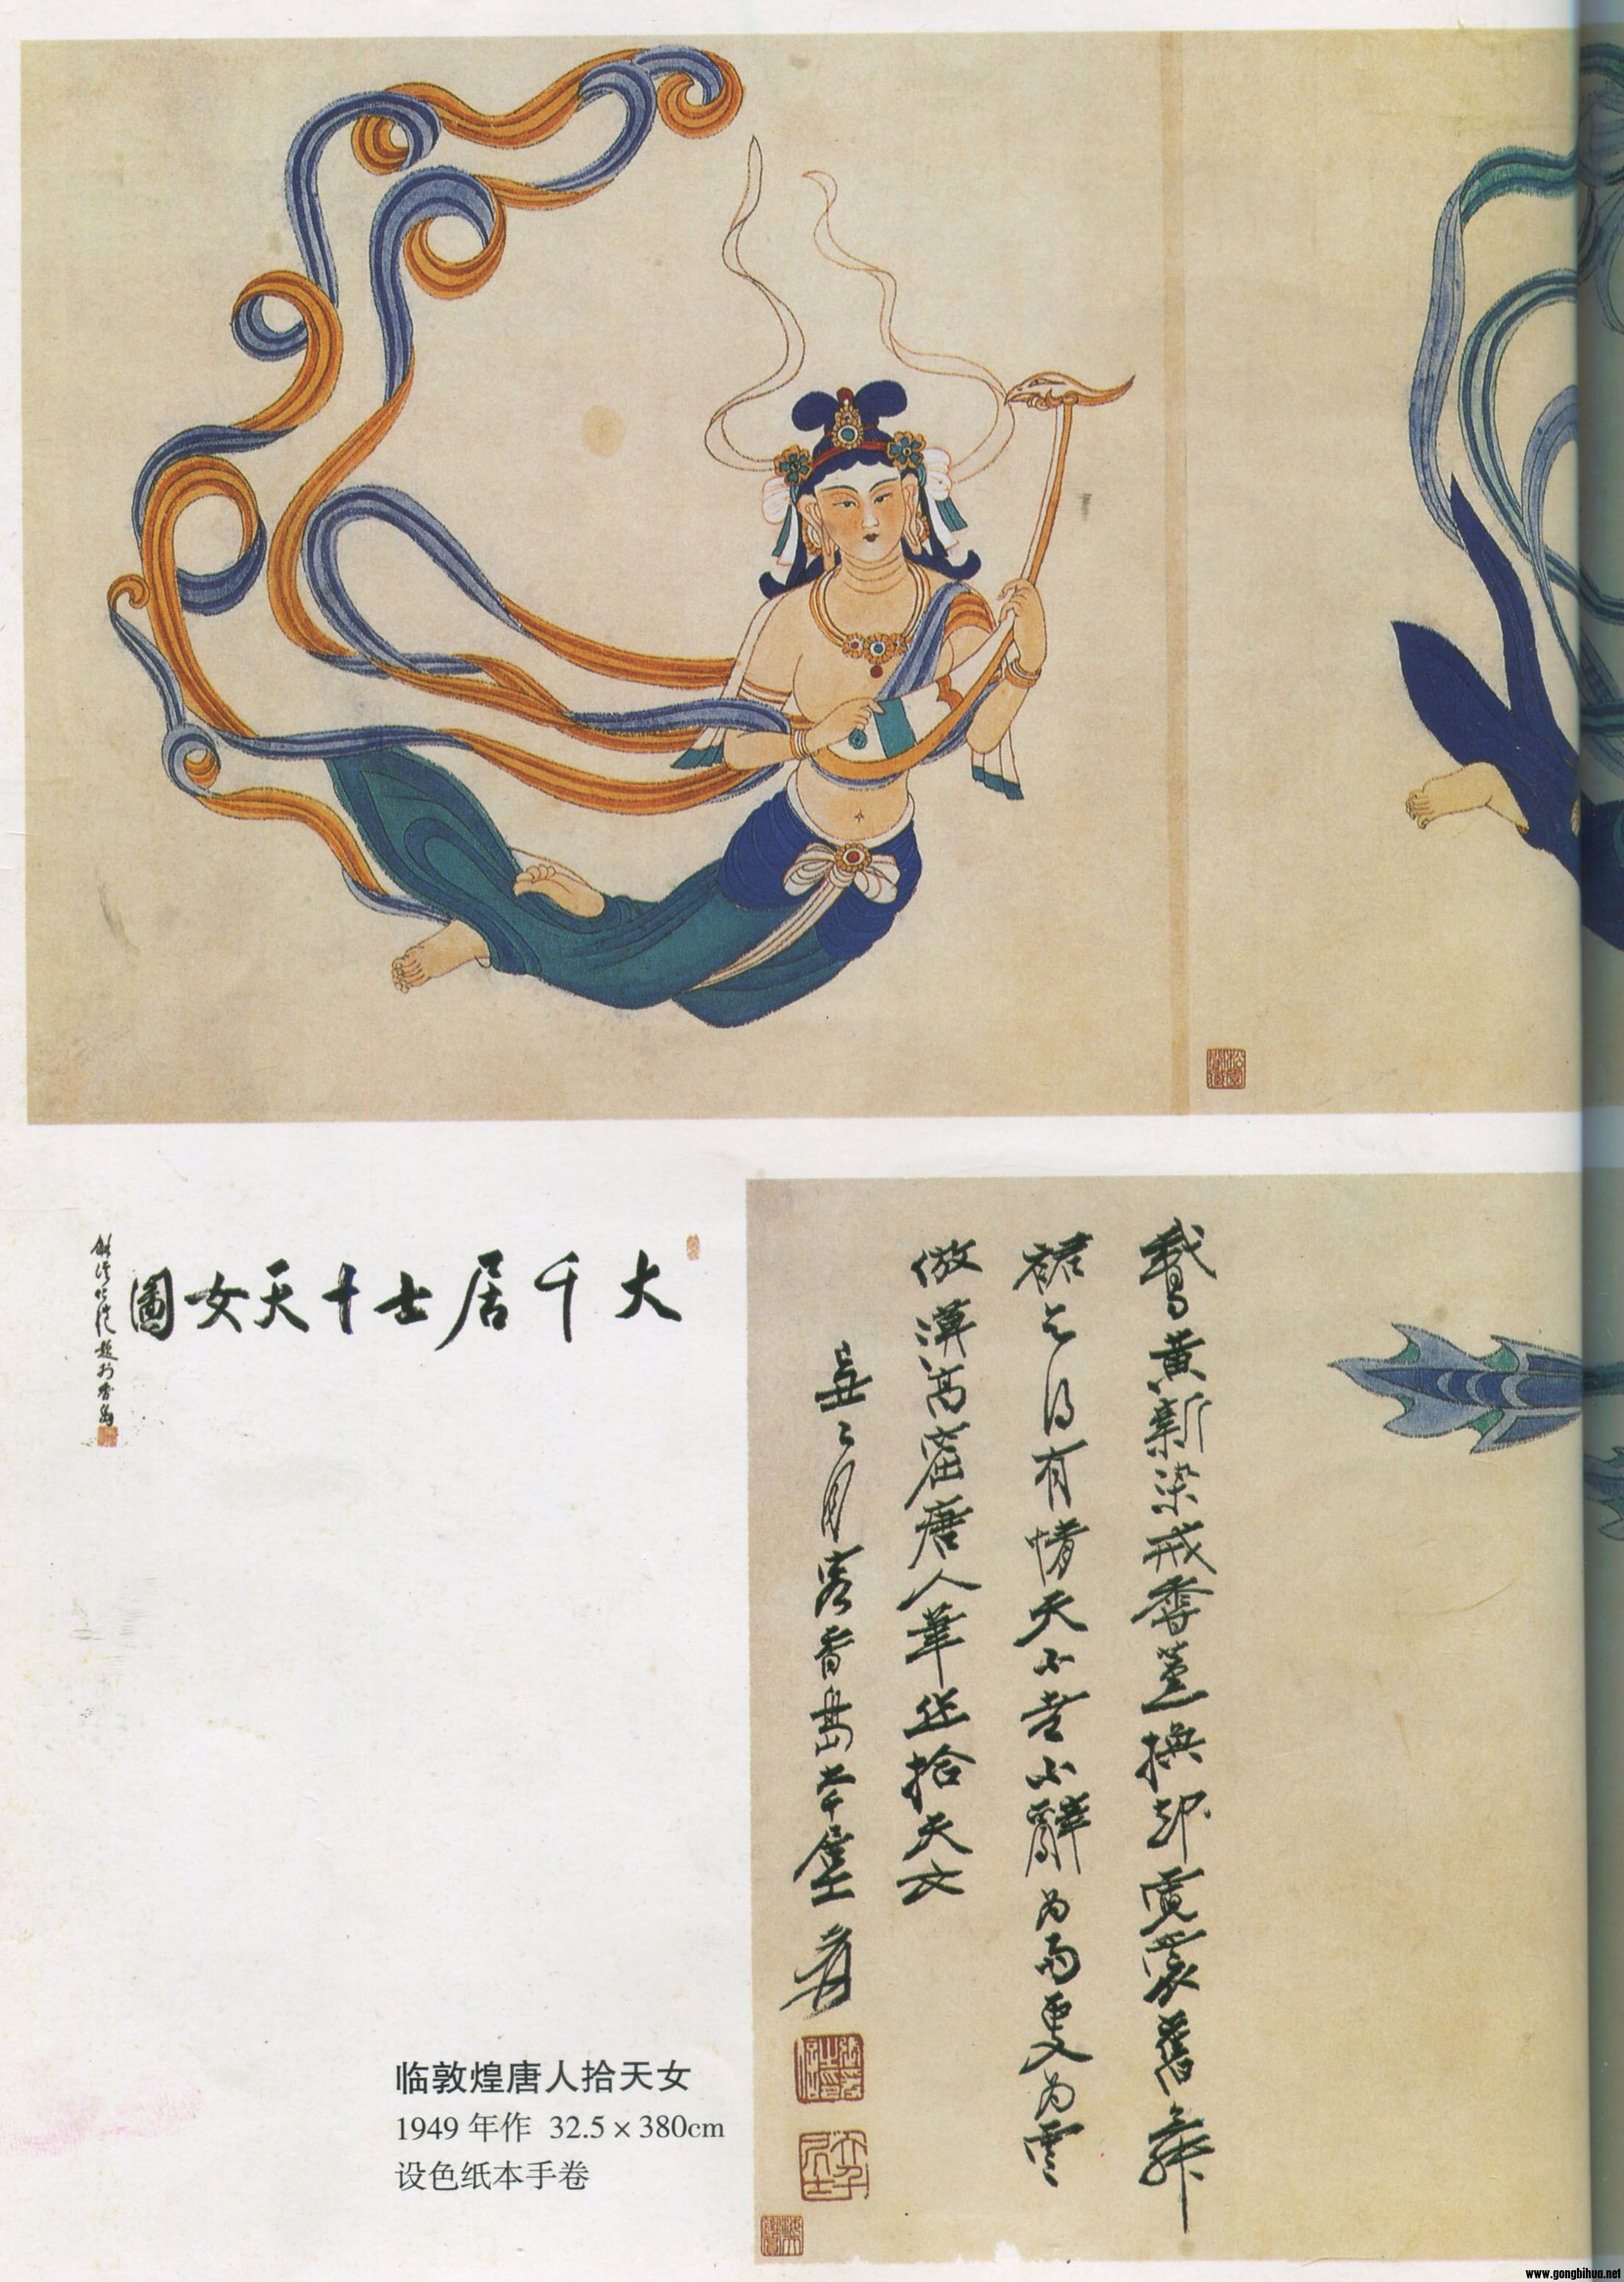 大千居士十天女圖
題於香島
鵞黃新染戒香薰換却霓裳舊舞
裙得有情天不老不辭為雨更為雲
倣漠高窟唐人筆作拾天女
己丑二月客香島大千居士爰
临敦煌唐人拾天女
1949 年作 32.5 × 380cm
设色纸本手卷
www.gongbihua.net